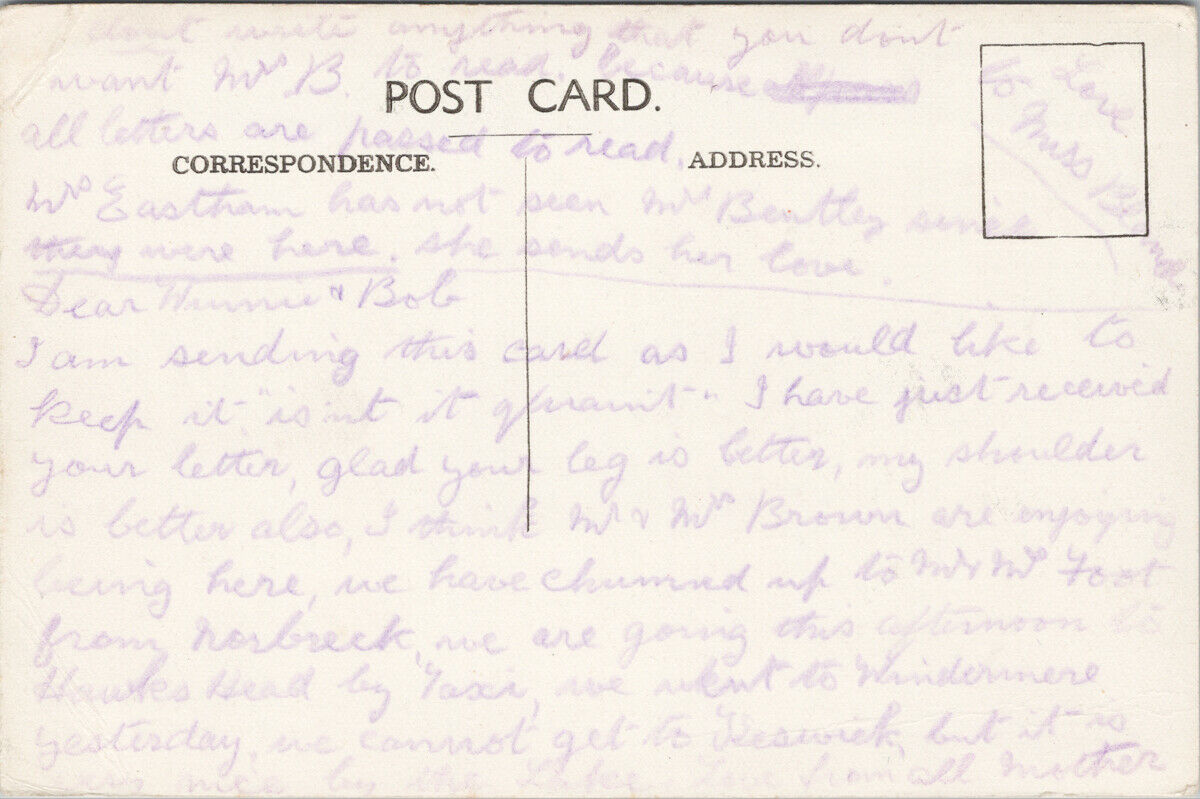 dont write anything that you dont
want Mrs B. to read. because
all letters are passed to read.
Mrs Eastham has not seen Mrs Bentley since
they were here. she sends her love.
POST CARD.
CORRESPONDENCE.
ADDRESS.
Love
to Miss
Dear Winnie & Bob
I am sending this card as I would like to
keep it "is'nt it quaint" I have just received
your letter, glad your leg is better, my shoulder
is better also, I think Mr & Mrs Brown are enjoying
being here, we have chummed up to Mr & Mrs Foot
from Norbreck, we are going this afternoon to
Hawks Head by Taxi, we went to Windermere
yesterday, we cannot get to Keswick, but it is
very nice by the Lake. Love from all Mother